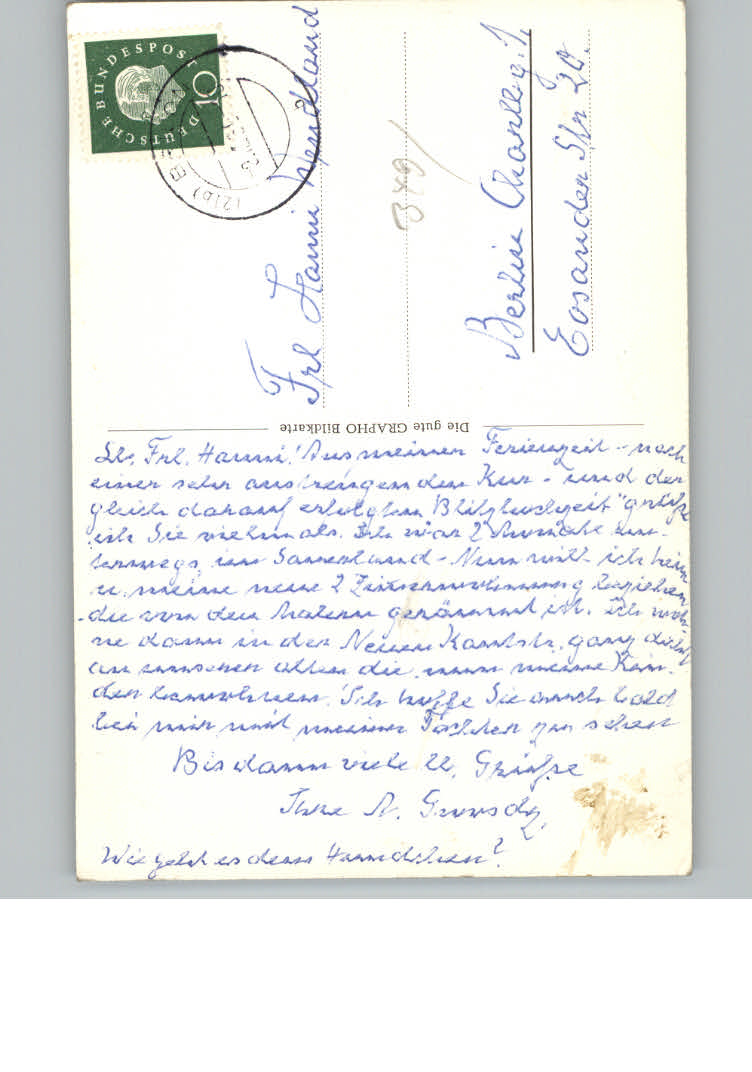 DEUTSCHE BUNDESPOST
10
Frl Hanni Wendland
Berlin Charlbg. 1,
Eosander Str 20.
Die gute GRAPHO Bildkarte
Lb. Frl. Hanni! Aus meiner Ferienzeit - nach
einer sehr anstrengenden Kur - und der
gleich darauf erfolgten "Blitzhochzeit" grüße
ich Sie vielmals. Ich war 2 un-
terwegs im - Nun will ich heim
u. meine neue 2 Zimmerwohnung beziehen
die von den Malern geräumt ist. Ich woh-
ne dann in der Neuen Kantstr. ganz dicht
an unserer alten die nun meine Kin-
der bewohnen. Ich hoffe Sie auch bald
bei mir mit meiner Tochter zu sehen
Bis dann viele lb. Grüße
Ihre A.
Wie geht es dem Hundchen?